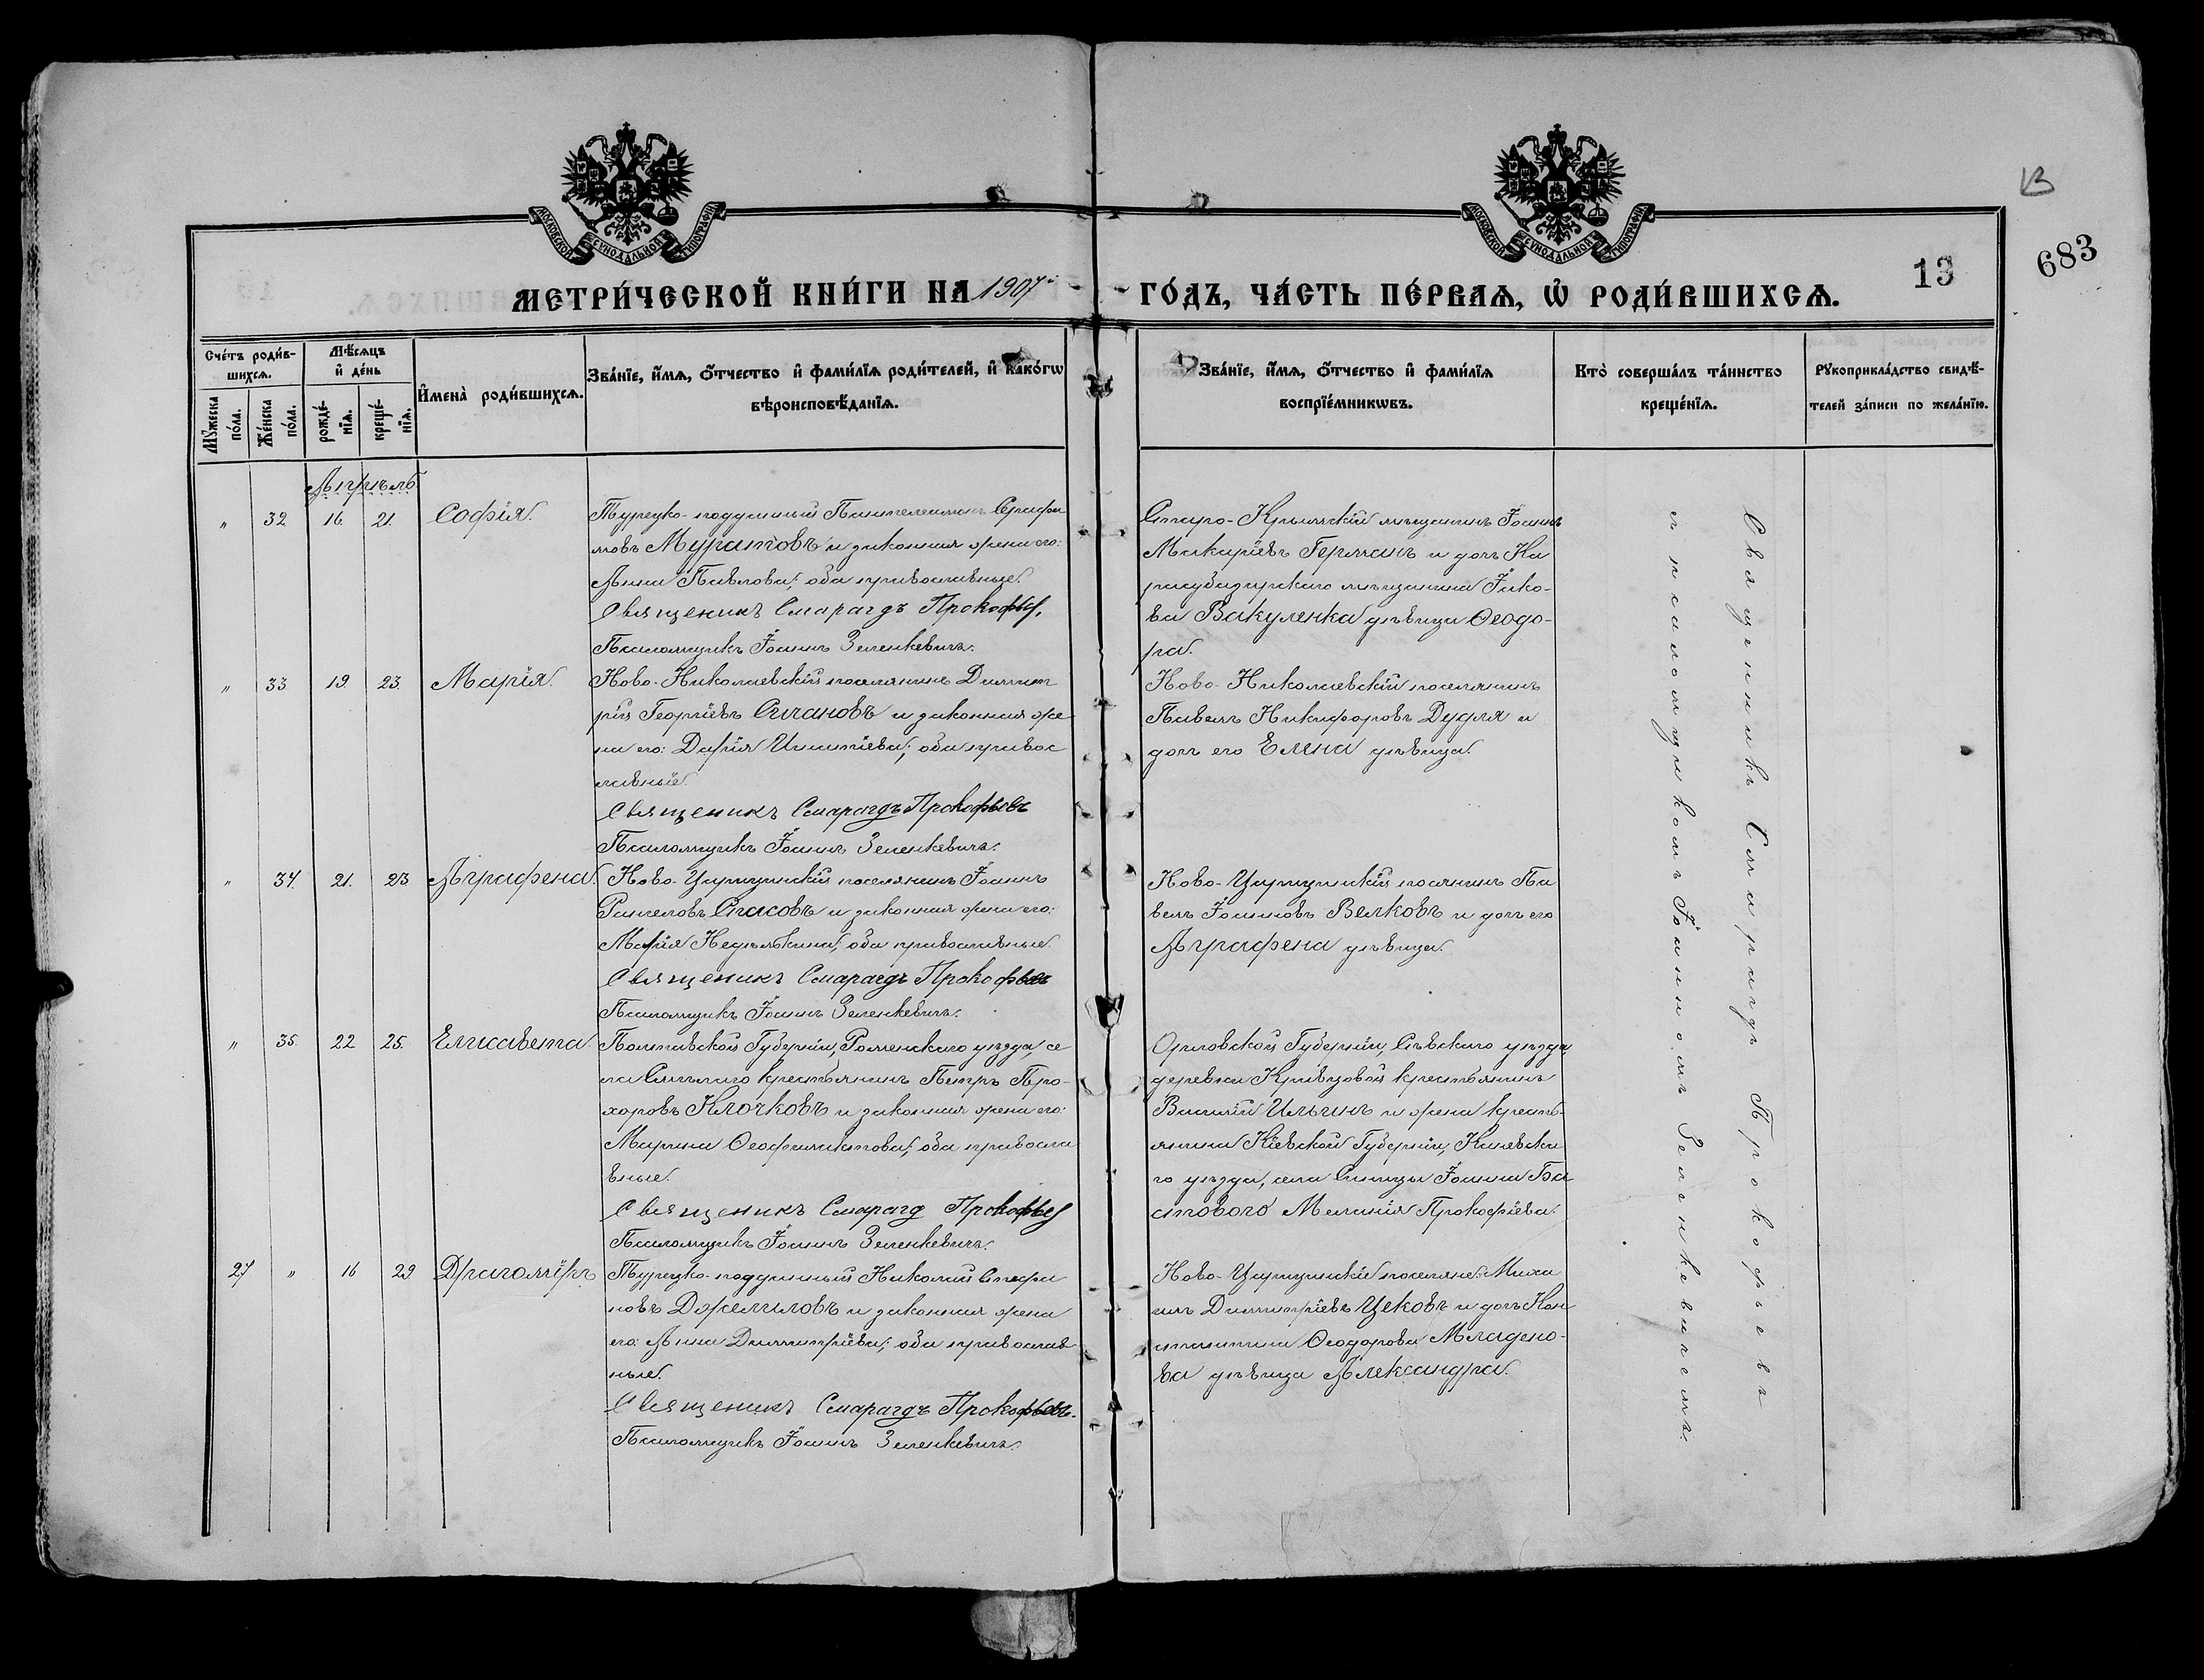 13
683
13
МОСКОВСКОЙ СѴНОДАЛЬНОЙ ТИПОГРАФІИ
МОСКОВСКОЙ СѴНОДАЛЬНОЙ ТИПОГРАФІИ
МЕТРИ́ЧЕСКОЙ КНИ́ГИ НА 1907
ГО́ДЪ, ЧА́СТЬ ПЕ́РВАѦ, Ѡ҆ РОДИ́ВШИХСѦ.
Сче́тъ роди́в-
шихсѧ.
Мꙋ́жеска по́ла.
Же́нска по́ла.
Мѣ́сѧцъ
и҆ де́нь
рожде́-
нїѧ.
креще́-
нїѧ.
И҆мена̀ роди́вшихсѧ.
Зва́нїе, и҆́мѧ, ѻ҆́тчество и҆ фами́лїѧ роди́телей, и҆ како́гѡ
вѣроисповѣ́данїѧ.
Зва́нїе, и҆́мѧ, ѻ҆́тчество и҆ фами́лїѧ
воспрїе́мникѡвъ.
Кто̀ соверша́лъ та́инство
креще́нїѧ.
Рꙋкоприкла́дство свидѣ́-
телей за́писи по жела́нїю.
Апрѣль
" 32 16. 21. Софія.
Турецко-подданный Пантелеимонъ Серафи
мовъ Муратовъ и законная жена его:
Анна Павлова; оба православные.
Священикъ Смарагдъ Прокофьев.
Псаломщикъ Іоаннъ Зеленкевичъ.
Старо-Крымскій мѣщанинъ Іоаннъ
Макаріевъ Германъ и дочь Ка
расубазарскаго мѣщанина Іако-
ва Вакуленка дѣвица Ѳеодо-
ра.
" 33 19. 23. Марія.
Ново-Николаевскій поселянинъ Димит
рій Георгіевъ Стгановъ и законная же
на его: Дарія Игнатіева; оба правос
лавные.
Священикъ Смарагдъ Прокофьевъ
Псаломщикъ Іоаннъ Зеленкевичъ.
Ново-Николаевскій поселянинъ
Павелъ Никифоровъ Дудля и
дочь его Елена дѣвица.
" 34. 21. 23 Аграфена.
Ново-Царицынскій поселянинъ Іоаннъ
Рангеловъ Спасовъ и законная жена его:
Марія Недѣлкина; оба православные.
Священикъ Смарагдъ Прокофьевъ
Псаломщикъ Іоаннъ Зеленкевичъ.
Ново-Царицынскій посянинъ Па
велъ Іоанновъ Велковъ и дочь его
Аграфена дѣвица.
" 35. 22 25. Елисавета.
Полтавской Губерніи, Роменскаго уѣзда, се
ла Смѣлаго крестьянинъ Петръ Про-
хоровъ Клочковъ и законная жена его:
Марина Ѳеофилактова; оба правосла
вные.
Священикъ Смарагд Прокофьев
Псаломщикъ Іоаннъ Зеленкевичъ.
Орловской Губерніи, Сѣвскаго уѣзда,
деревни Кривцовой крестьянинъ
Василій Ильинъ и жена кресть-
янина Кіевской Губерніи, Каневска
го уѣзда, села Синицы Іоанна Ба
стового Меланія Прокофіева.
27 " 16 29 Драгоміръ
Турецко-подданный Николай Стефа
новъ Джелиловъ и законная жена
его: Анна Димитріева; оба православ
ные.
Священикъ Смарагдъ Прокофьевъ.
Псаломщикъ Іоаннъ Зеленкевичъ.
Ново-Царицынскіе поселяне: Миха
илъ Димитріевъ Цековъ и дочь Кон
стантина Ѳеодорова Младено-
ва дѣвица Александра.
Священникъ Смарагдъ Прокофьевъ
съ псаломщикомъ Іоанномъ Зеленкевичемъ.